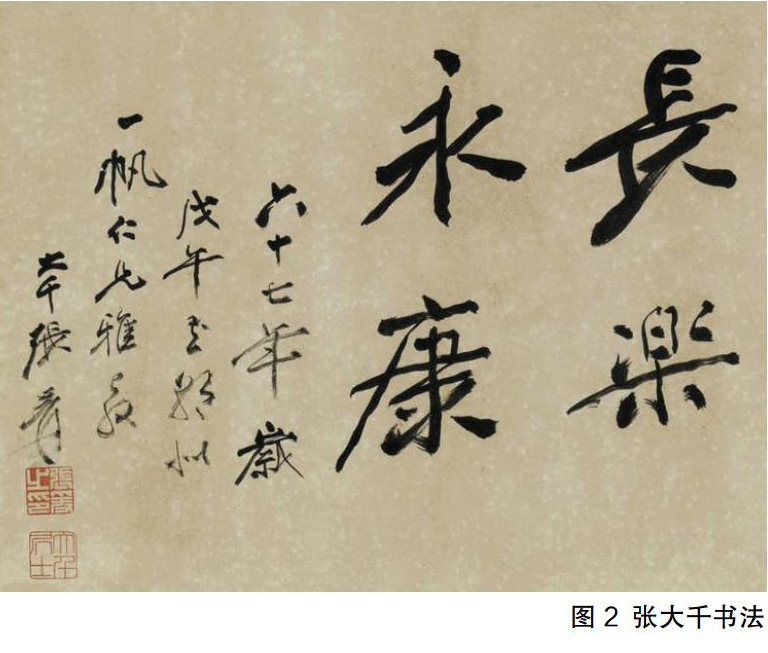 長楽
永康
六十七年歲
戊午
一帆仁兄雅教
大千張爰
張爰之印
大千居士
图 2 张大千书法